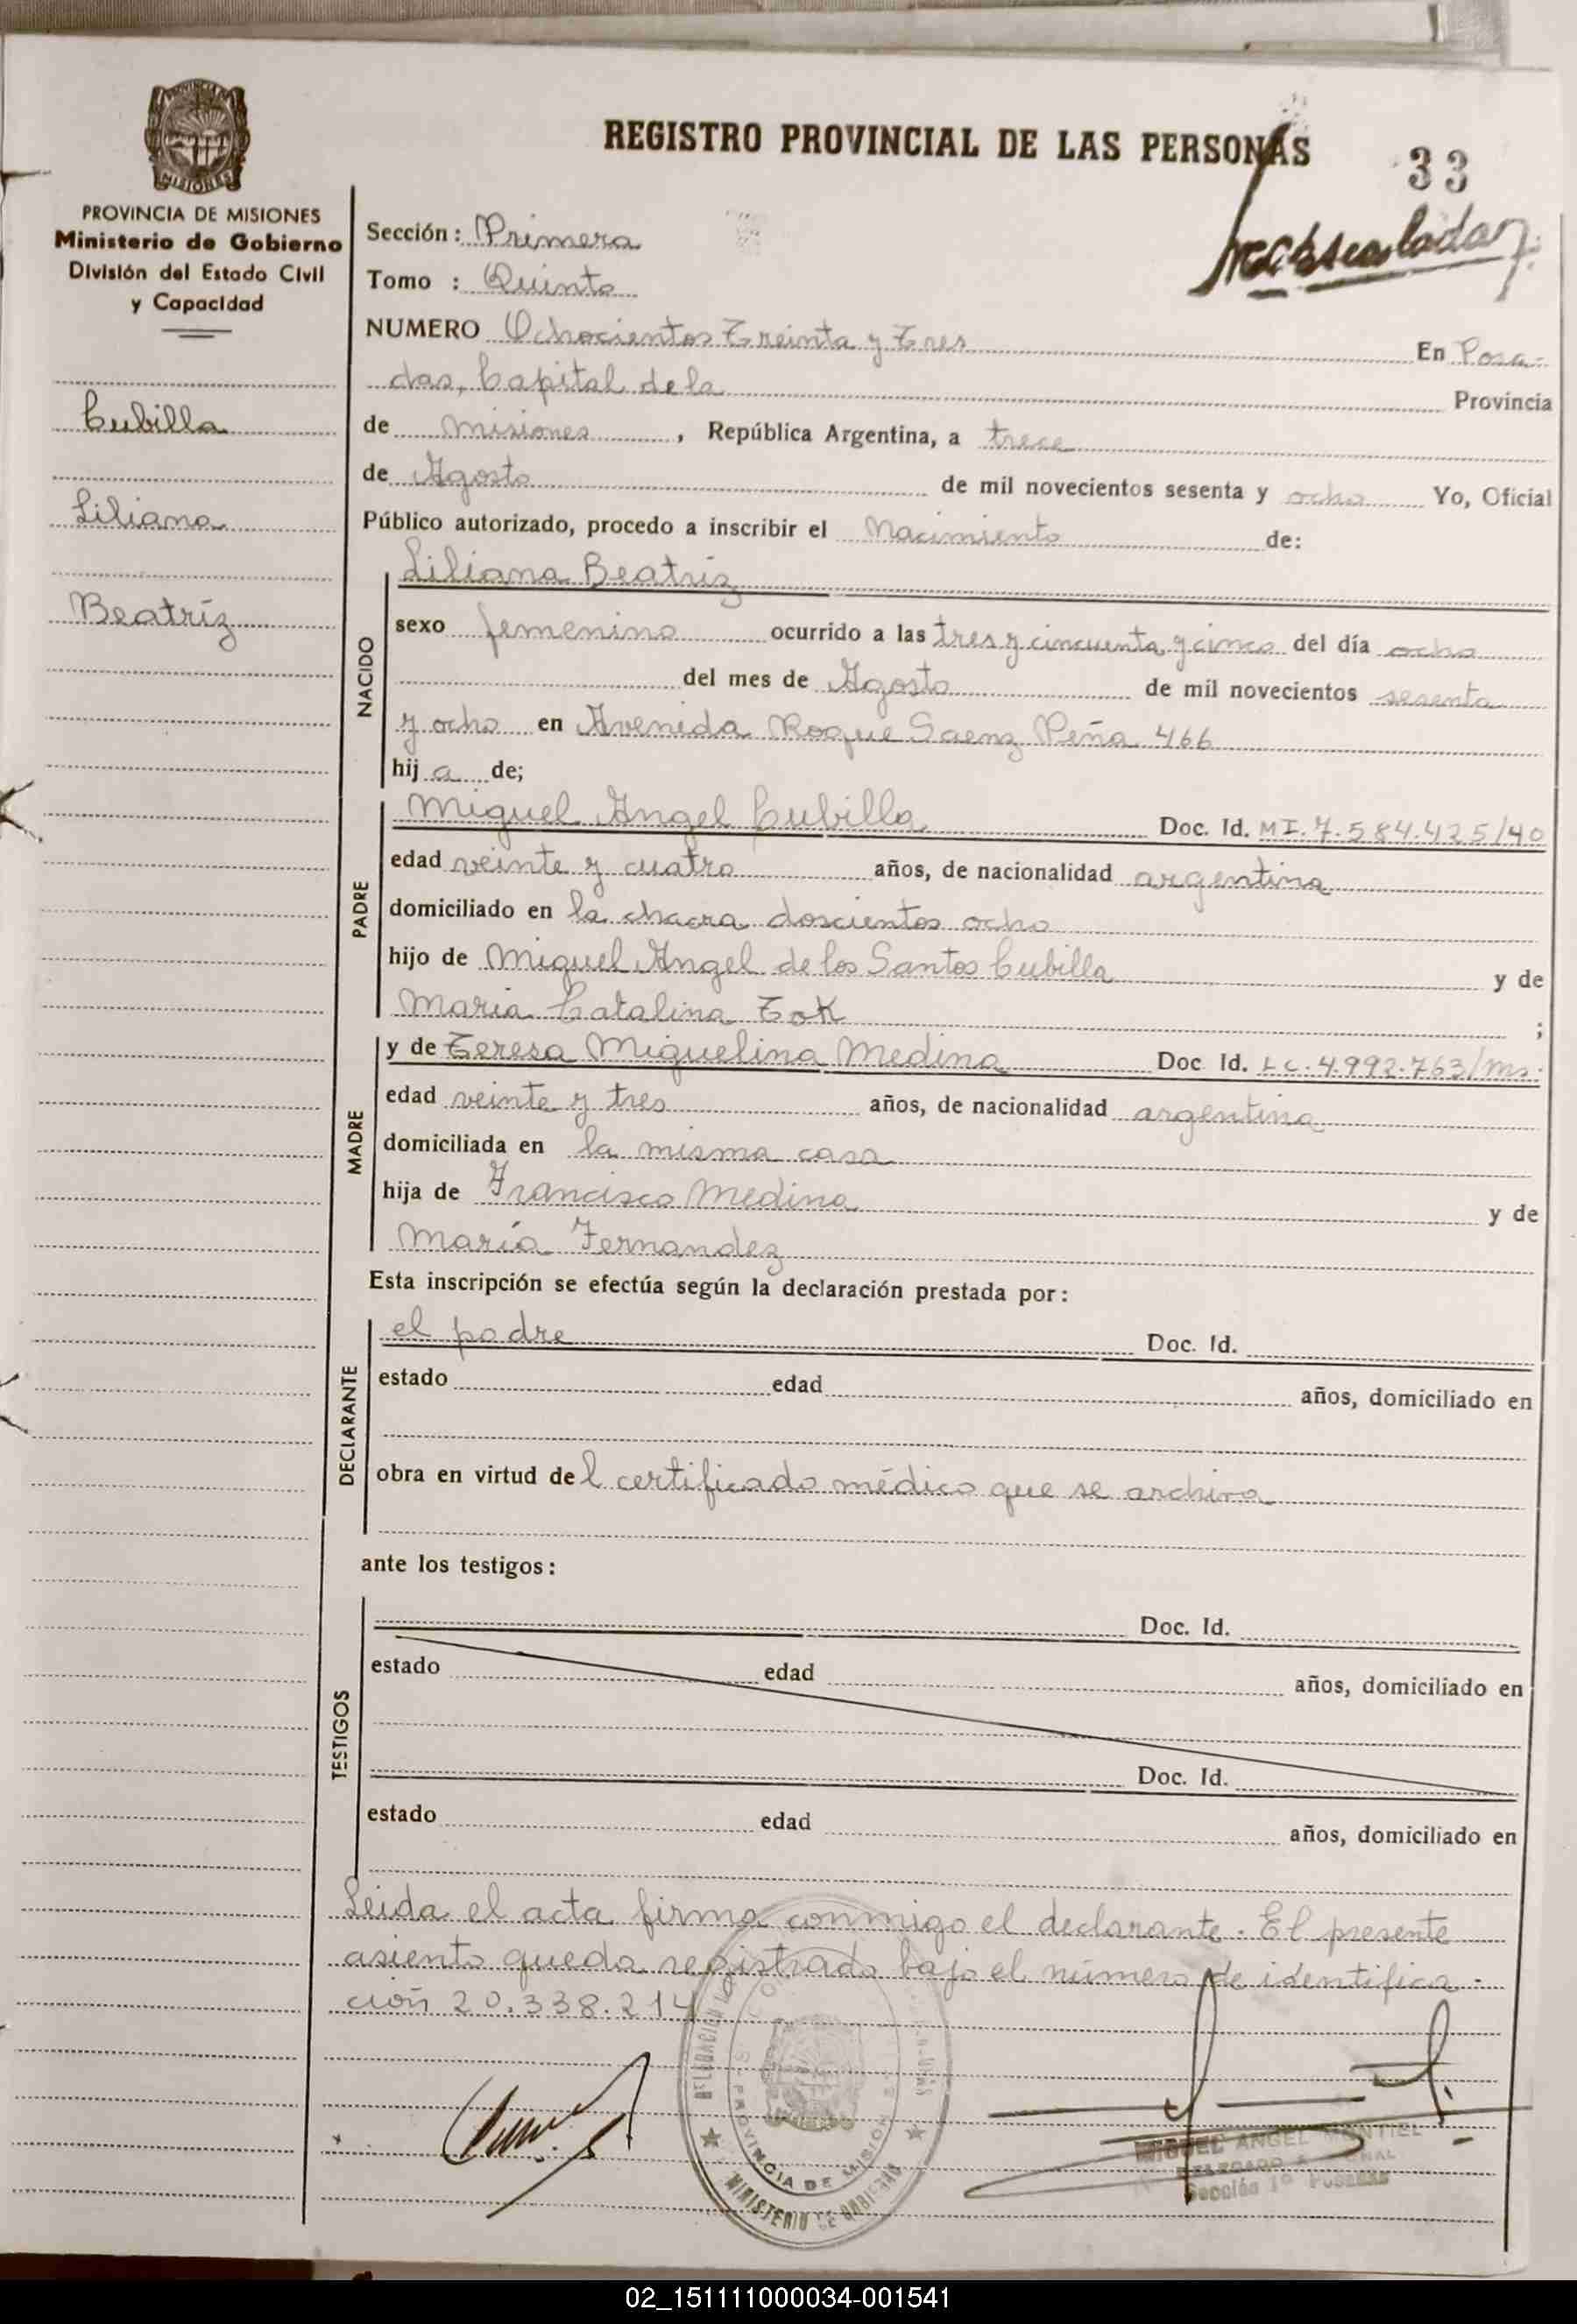 PROVINCIA DE MISIONES
Ministerio de Gobierno
División del Estado Civil
y Capacidad
Cubilla
Liliana
Beatríz
REGISTRO PROVINCIAL DE LAS PERSONAS
33
Sección: Primera
Tomo : Quinto
NUMERO Ochocientos Treinta y Tres En Posa-
das, Capital de la Provincia
de Misiones, República Argentina, a trece
de Agosto de mil novecientos sesenta y ocho Yo, Oficial
Público autorizado, procedo a inscribir el Nacimiento de:
NACIDO
Liliana Beatriz
sexo femenino ocurrido a las tres y cincuenta y cinco del día ocho
del mes de Agosto de mil novecientos sesenta
y ocho en Avenida Roque Saenz Peña 466
hija de;
PADRE
Miguel Angel Cubilla Doc. Id. MI. 7.584.425/40
edad veinte y cuatro años, de nacionalidad argentina
domiciliado en la chacra doscientos ocho
hijo de Miguel Angel de los Santos Cubilla y de
Maria Catalina Tok ;
MADRE
y de Teresa Miguelina Medina Doc Id. LC. 4.992.763/Ms.
edad veinte y tres años, de nacionalidad argentina
domiciliada en la misma casa
hija de Francisco Medina y de
María Fernandez
Esta inscripción se efectúa según la declaración prestada por:
DECLARANTE
el padre Doc. Id.
estado edad años, domiciliado en
obra en virtud del certificado médico que se archiva
ante los testigos:
TESTIGOS
Doc. Id.
estado edad años, domiciliado en
Doc. Id.
estado edad años, domiciliado en
Leida el acta firma conmigo el declarante. El presente
asiento queda registrado bajo el número de identifica-
ción 20.338.214
PROVINCIA DE MISIONES
MINISTERIO DE GOBIERNO
MIGUEL ANGEL MONTIEL
Sección 1ª POSADAS
02_151111000034-001541